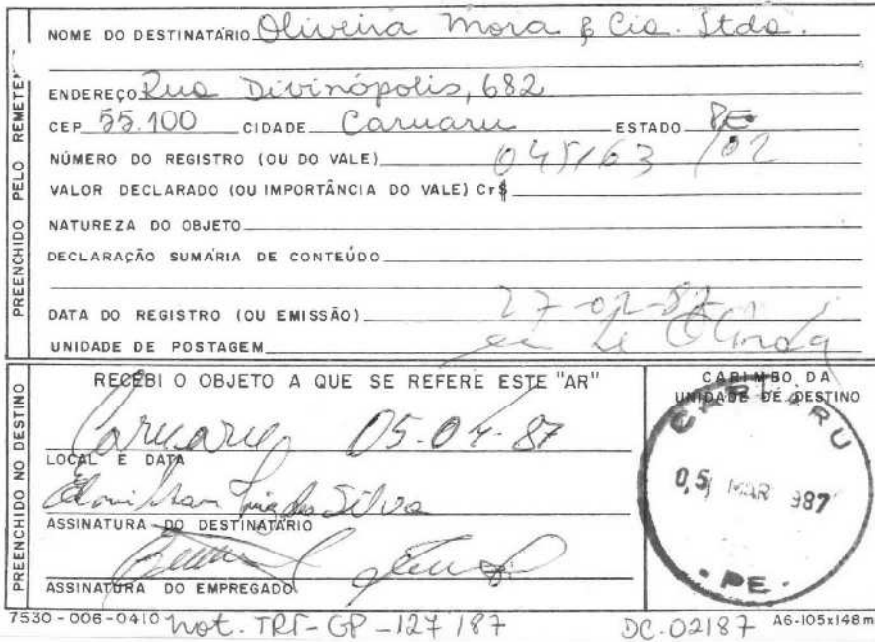 PREENCHIDO PELO REMETENTE
NOME DO DESTINATÁRIO Oliveira Mora & Cia. Ltda.
ENDEREÇO Rua Divinópolis, 682
CEP 55.100 CIDADE Caruaru ESTADO PE
NÚMERO DO REGISTRO (OU DO VALE) 045163 /02
VALOR DECLARADO (OU IMPORTÂNCIA DO VALE) Cr$
NATUREZA DO OBJETO
DECLARAÇÃO SUMÁRIA DE CONTEÚDO
DATA DO REGISTRO (OU EMISSÃO) 27-02-87
UNIDADE DE POSTAGEM Olinda
PREENCHIDO NO DESTINO
RECEBI O OBJETO A QUE SE REFERE ESTE "AR"
Caruaru 05-04-87
LOCAL E DATA
Silva
ASSINATURA DO DESTINATÁRIO
ASSINATURA DO EMPREGADO
CARIMBO DA
UNIDADE DE DESTINO
CARUARU
05 MAR 987
PE
7530-006-0410 Not. TRT-GP-127/87 DC-02187 A6-105x148m